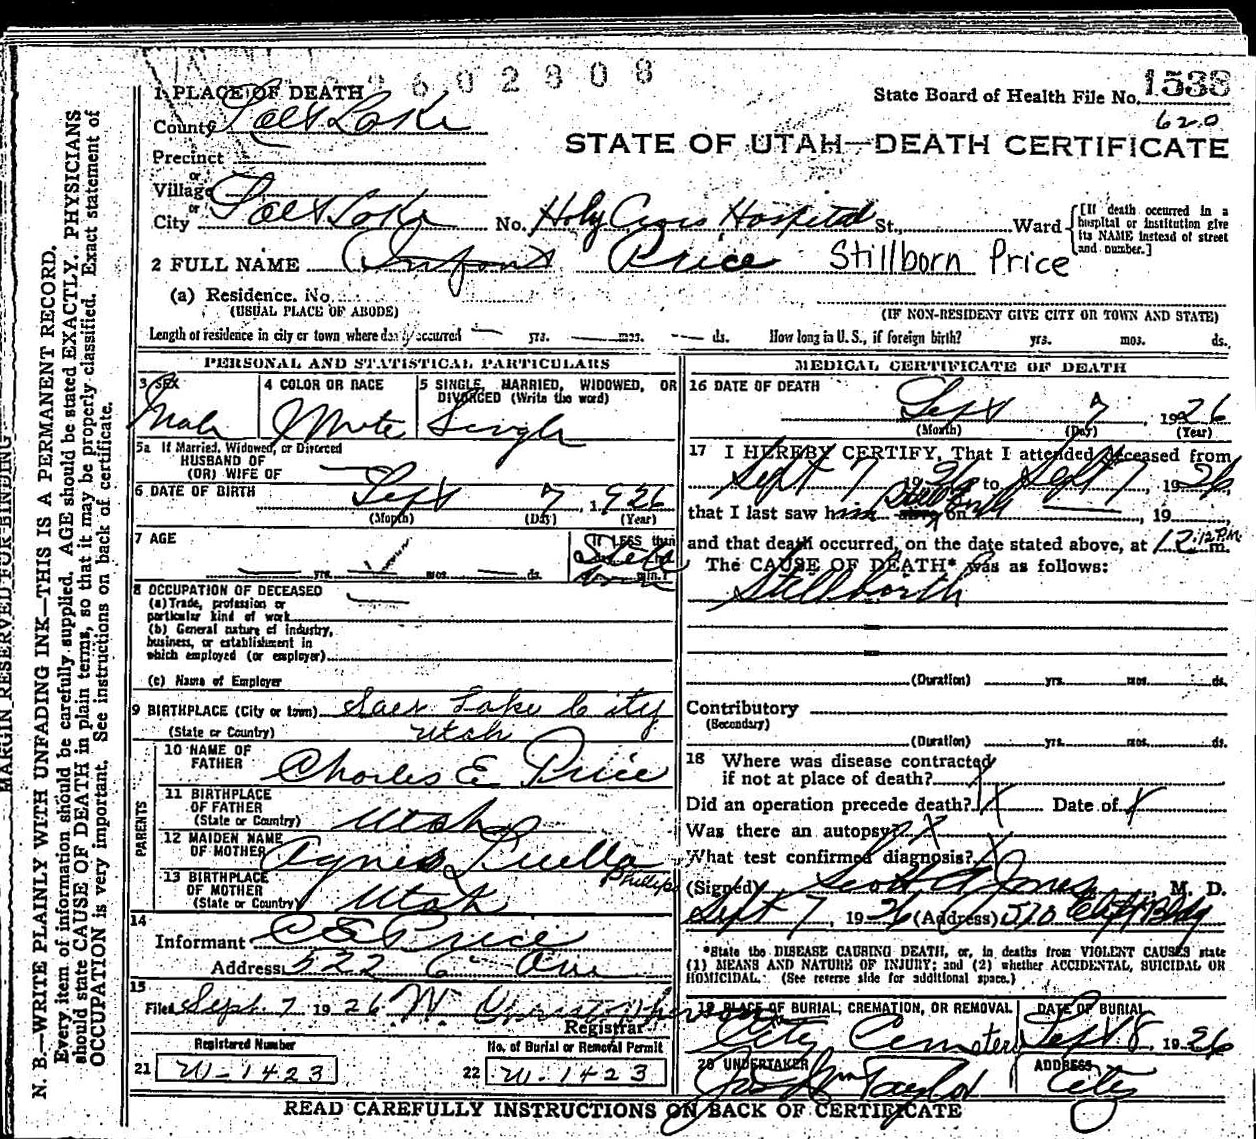 2602808
1538
1 PLACE OF DEATH
State Board of Health File No.
620
County Salt Lake
STATE OF UTAH—DEATH CERTIFICATE
Precinct
or
Village
or
City Salt Lake No. Holy Cross Hospital St., Ward
[If death occurred in a hospital or institution give its NAME instead of street and number.]
2 FULL NAME Infant Price Stillborn Price
(a) Residence. No.
(USUAL PLACE OF ABODE) (IF NON-RESIDENT GIVE CITY OR TOWN AND STATE)
Length of residence in city or town where death occurred — yrs. — mos. — ds. How long in U. S., if foreign birth? yrs. mos. ds.
PERSONAL AND STATISTICAL PARTICULARS
3 SEX
Male
4 COLOR OR RACE
White
5 SINGLE, MARRIED, WIDOWED, OR
DIVORCED (Write the word)
Single
5a If Married, Widowed, or Divorced
HUSBAND OF
(OR) WIFE OF
6 DATE OF BIRTH Sept 7, 1926
(Month) (Day) (Year)
7 AGE
yrs. mos. ds.
If LESS than
Still
born
min.?
8 OCCUPATION OF DECEASED
(a) Trade, profession or
particular kind of work
(b) General nature of industry,
business, or establishment in
which employed (or employer)
(c) Name of Employer
9 BIRTHPLACE (City or town) Salt Lake City
(State or Country) Utah
PARENTS
10 NAME OF
FATHER Charles E Price
11 BIRTHPLACE
OF FATHER
(State or Country) Utah
12 MAIDEN NAME
OF MOTHER Agnes Luella
Phillips
13 BIRTHPLACE
OF MOTHER
(State or Country) Utah
14
Informant C E Price
Address 522 6 Ave
15
Filed Sept. 7 1926 W.
Registrar
Registered Number
21 W-1423
No. of Burial or Removal Permit
22 W-1423
MEDICAL CERTIFICATE OF DEATH
16 DATE OF DEATH
Sept 7 1926
(Month) (Day) (Year)
17 I HEREBY CERTIFY, That I attended deceased from
Sept 7 1926 to Sept 7, 1926
that I last saw him alive on Stillbirth, 19
and that death occurred, on the date stated above, at 12:12 P.M. m.
The CAUSE OF DEATH* was as follows:
Stillbirth
(Duration) yrs. mos. ds.
Contributory
(Secondary)
(Duration) yrs. mos. ds.
18 Where was disease contracted
if not at place of death?
Did an operation precede death? Date of
Was there an autopsy?
What test confirmed diagnosis?
(Signed) Scott A Jones, M. D.
Sept 7, 1926 (Address) 510 Clift Bldg
*State the DISEASE CAUSING DEATH, or, in deaths from VIOLENT CAUSES state
(1) MEANS AND NATURE OF INJURY; and (2) whether ACCIDENTAL, SUICIDAL OR
HOMICIDAL. (See reverse side for additional space.)
19 PLACE OF BURIAL, CREMATION, OR REMOVAL
City Cemetery
DATE OF BURIAL
Sept 8, 1926
20 UNDERTAKER
Jos Wm Taylor
ADDRESS
City
READ CAREFULLY INSTRUCTIONS ON BACK OF CERTIFICATE
MARGIN RESERVED FOR BINDING
N. B.—WRITE PLAINLY WITH UNFADING INK—THIS IS A PERMANENT RECORD.
Every item of information should be carefully supplied. AGE should be stated EXACTLY. PHYSICIANS
should state CAUSE OF DEATH in plain terms, so that it may be properly classified. Exact statement of
OCCUPATION is very important. See instructions on back of certificate.